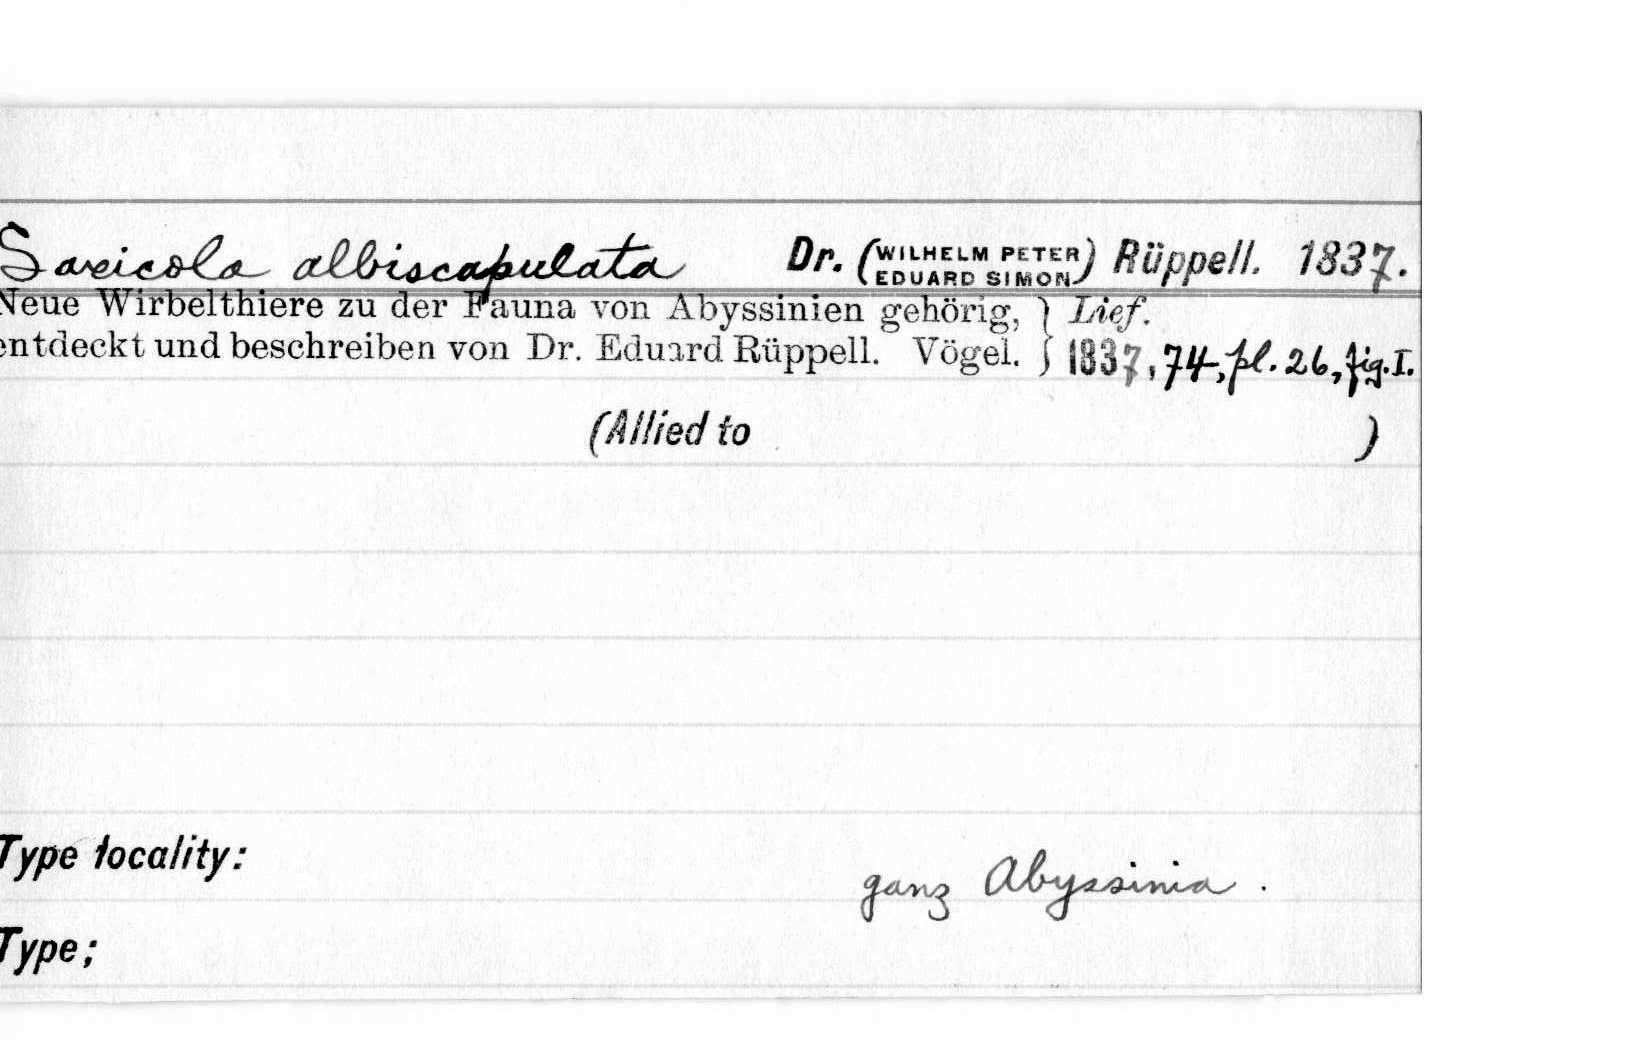 Saxicola albiscapulata Dr. (WILHELM PETER EDUARD SIMON) Rüppell. 1837.
Neue Wirbelthiere zu der Fauna von Abyssinien gehörig, } Lief.
entdeckt und beschreiben von Dr. Eduard Rüppell. Vögel. } 1837, 74, pl. 26, fig. I.
(Allied to )
Type locality:
ganz Abyssinia.
Type;